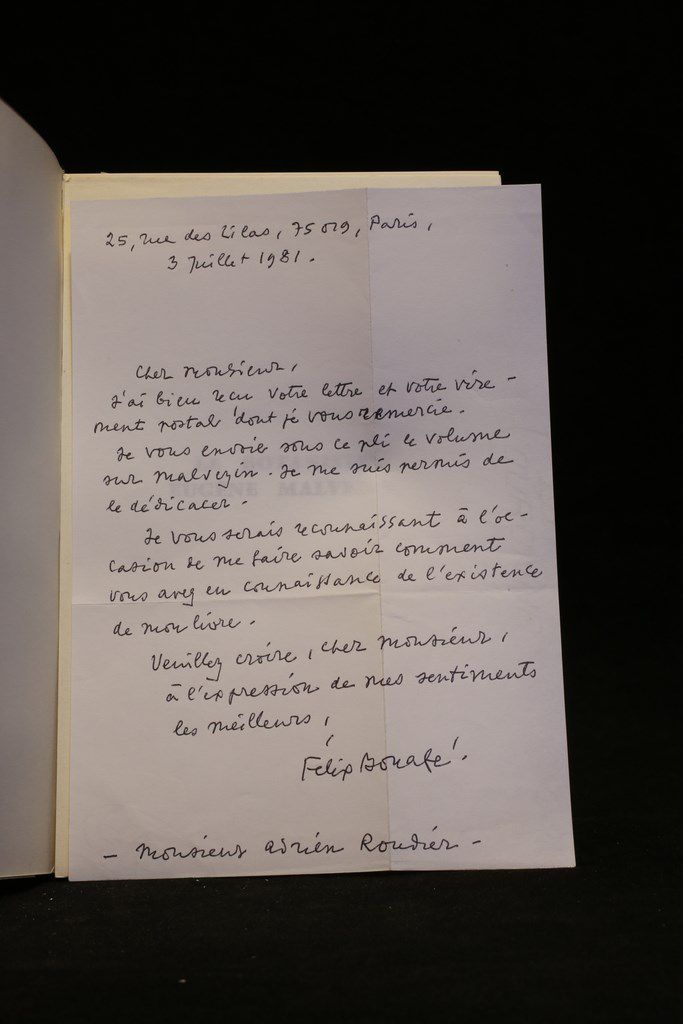 25, rue des Lilas, 75019, Paris,
3 Juillet 1981.
Cher Monsieur,
J'ai bien reçu votre lettre et votre vire-
ment postal dont je vous remercie.
Je vous envoie sous ce pli le volume
sur Malvezin. Je me suis permis de
le dédicacer.
Je vous serais reconnaissant à l'oc-
casion de me faire savoir comment
vous avez eu connaissance de l'existence
de mon livre.
Veuillez croire, cher Monsieur,
à l'expression de mes sentiments
les meilleurs,
Félix Bonafé.
- Monsieur Adrien Roudier -